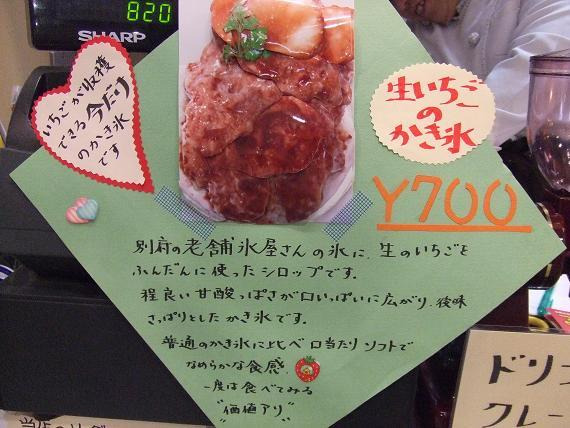 820
SHARP
いちごが収穫
できる今だけ
のかき氷
です
生いちご
の
かき氷
¥700
別府の老舗氷屋さんの氷に、生のいちごを
ふんだんに使ったシロップです。
程良い甘酸っぱさが口いっぱいに広がり、後味
さっぱりとしたかき氷です。
普通のかき氷に比べ口当たりソフトで
なめらかな食感。
一度は食べてみる
"価値アリ"
ドリ
クレー